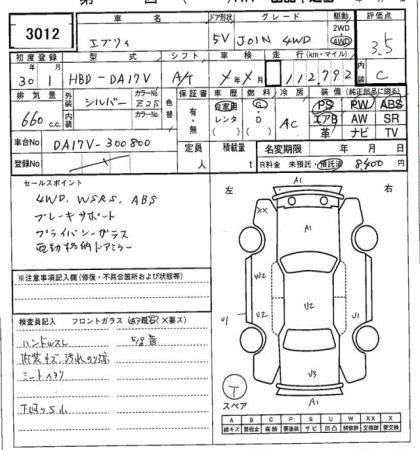 3012
車名 ドア形状 グレード 駆動 評価点
エブリィ 5V JOIN 4WD 2WD 4WD 3.5
初度登録 型式 シフト 車検 走行(km・マイル) 内装
30年1月 HBD-DA17V A/T X年X月 112,792 C
排気量 外装 カラーNo. 色替 保証書 車歴 燃料 冷房 装備(純正部品に限る)
660c.c. シルバー Z2S 有・無 自家用 レンタ G AC PS PW ABS
内装 カラーNo. エアB AW SR
革 ナビ TV
車台No DA17V-300800 定員 人 積載量 t 名変期限 年 月 日
登録No R料金 未預託・預託済 8,400円
セールスポイント
4WD, WSRS, ABS
ブレーキサポート
プライバシーガラス
電動格納ドアミラー
左 右
A1
XX A1
W2
U2 U2
U1 U1
U3
A1
※注意事項記入欄(修復・不具合箇所および状態等)
検査員記入 フロントガラス
ハンドルスレ
内装キズ、汚れ
シートヘタリ
下回りサビ
T
スペア
A B C P S U W X XX
線キズ 要板金 腐蝕 要塗装 サビ 凹凸 補修跡 要交換